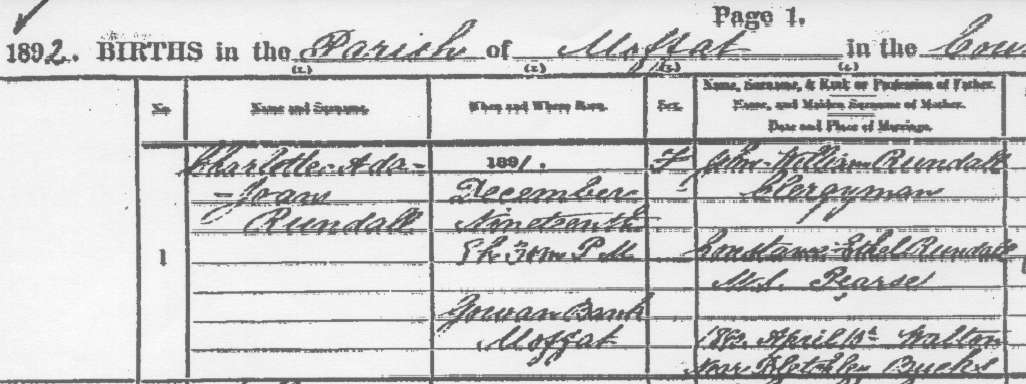 Page 1.
1892. BIRTHS in the Parish of Moffat in the
(1.) (2.) (3.) (4.)
No Name and Surname. When and Where Born. Sex. Name, Surname, & Rank or Profession of Father.
Name, and Maiden Surname of Mother.
Date and Place of Marriage.
1 Charlotte Ada 1891. F John William Rundall
Joan December Clergyman
Rundall Nineteenth
P.M. Constance Ethel Rundall
M.S. Pearse
Gowan Bank
Moffat April Walton
near Bletchley Bucks